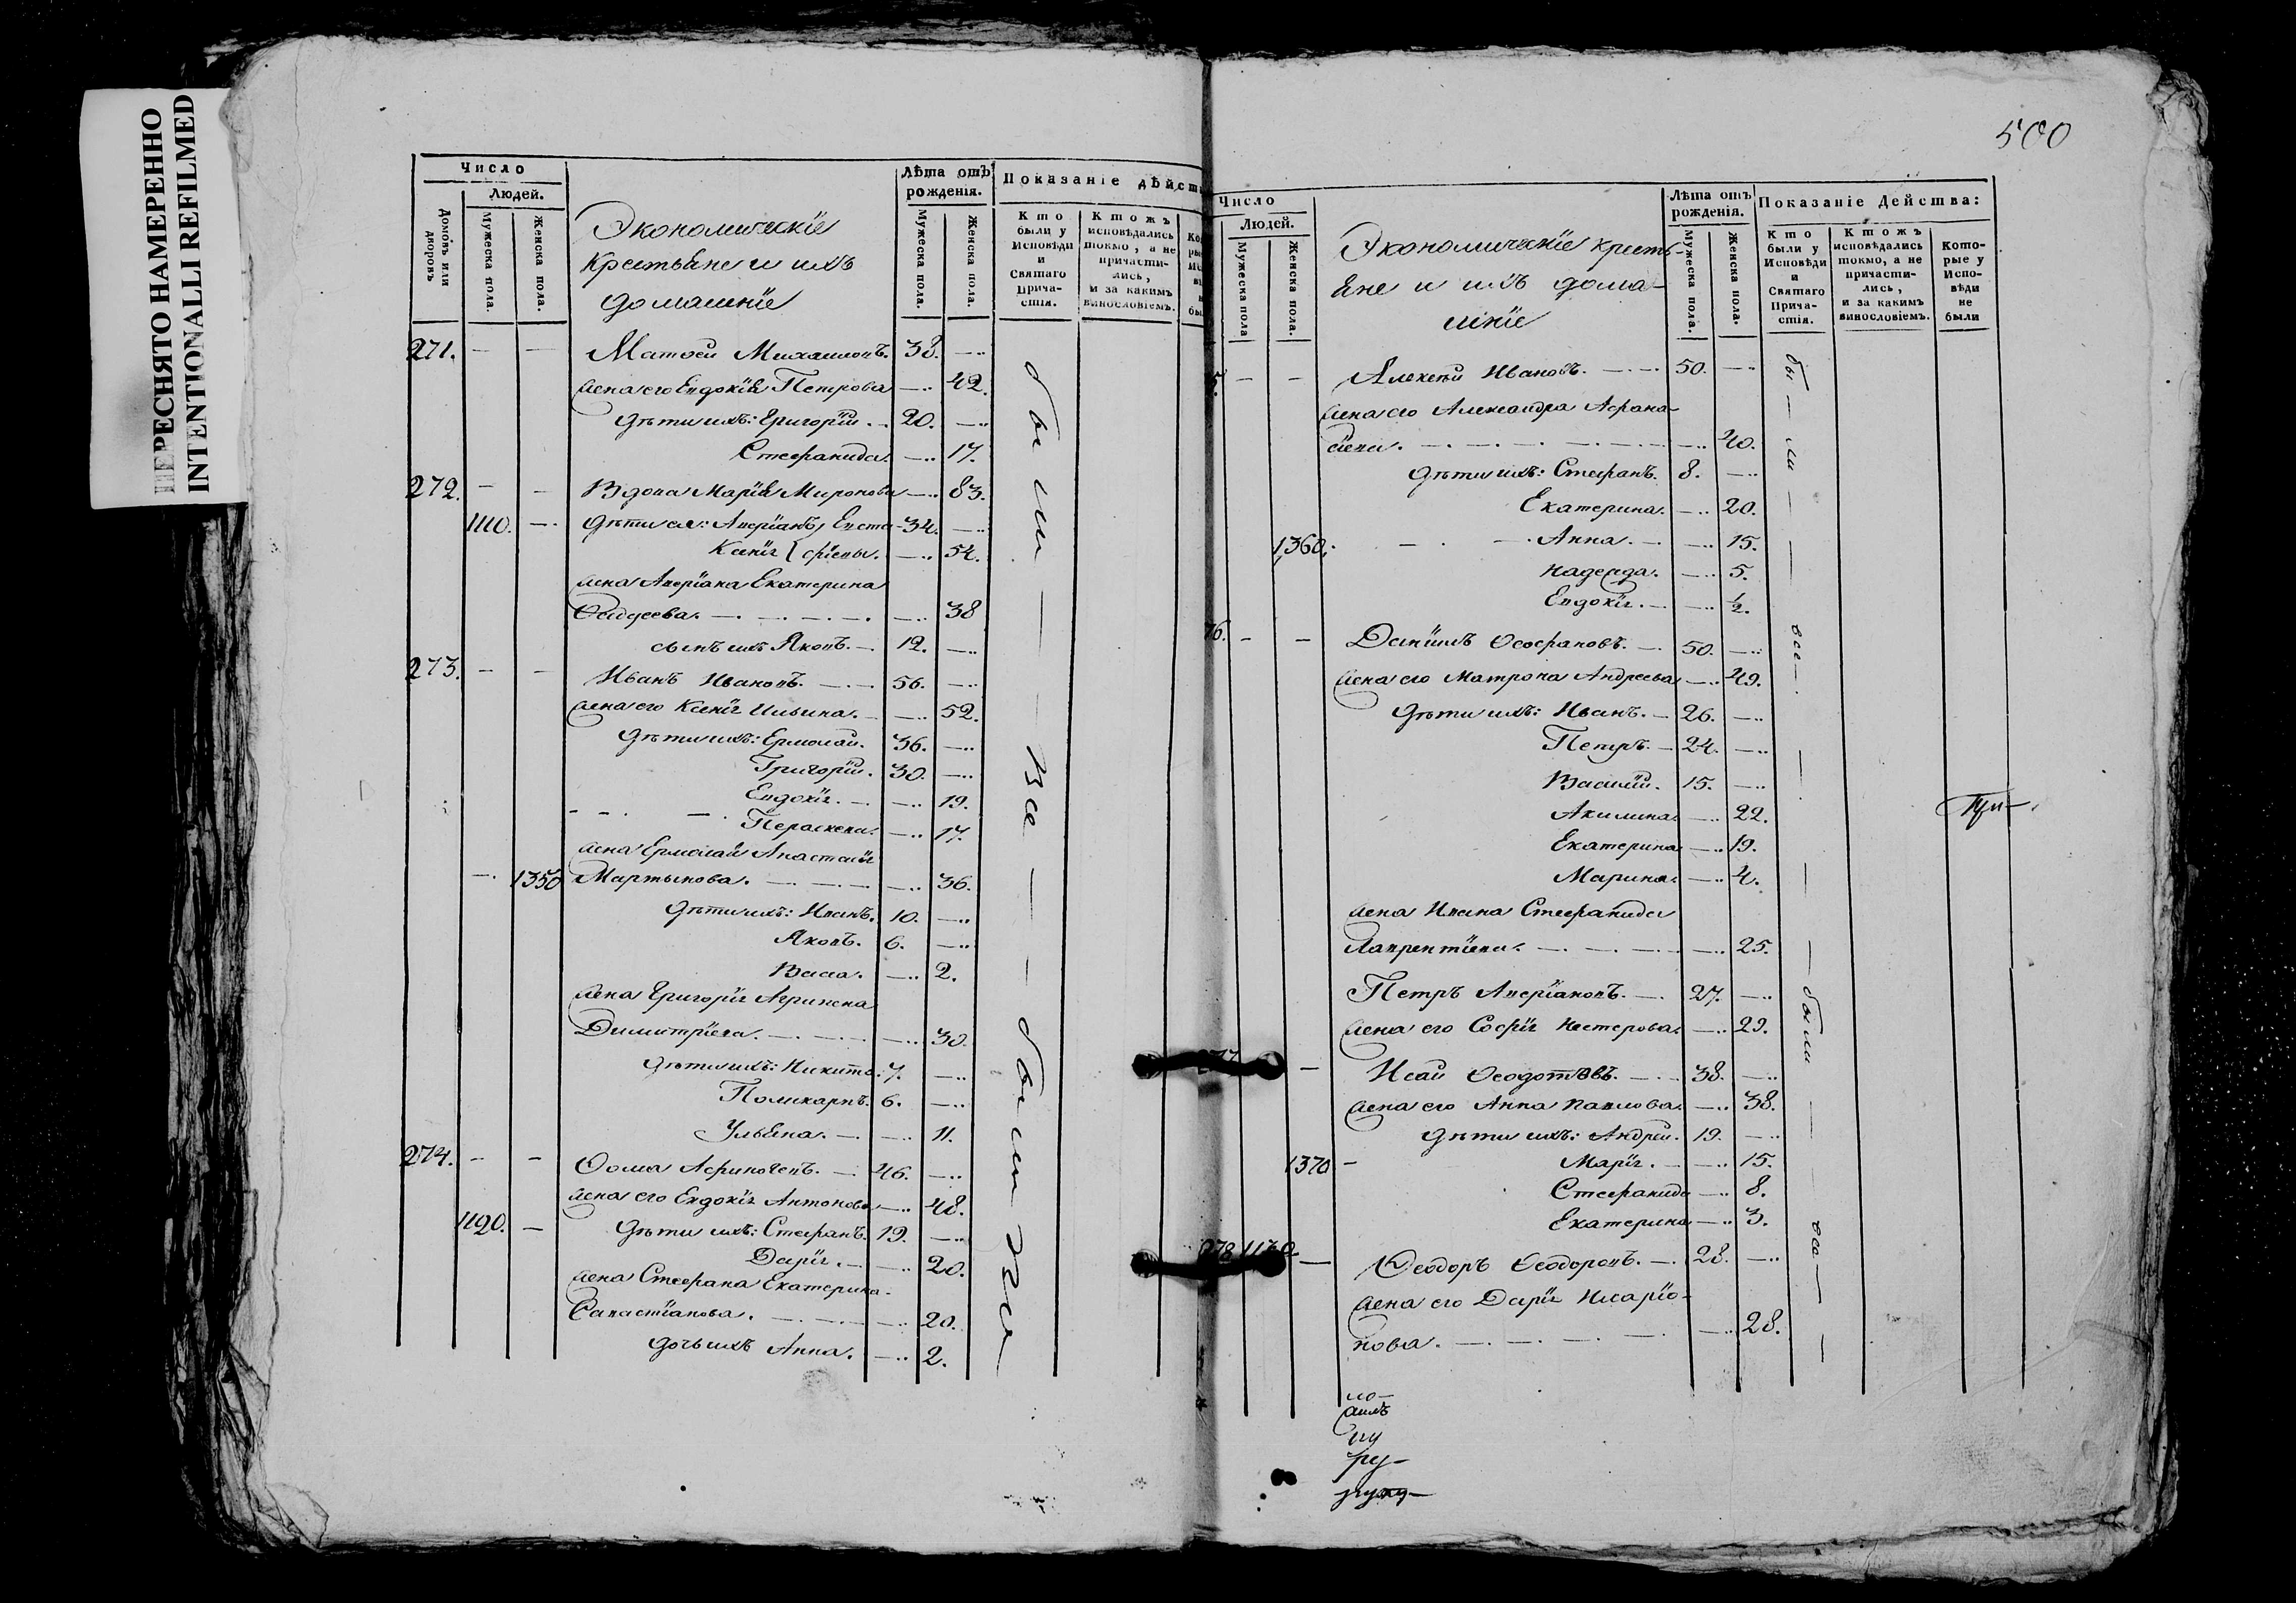 ПЕРЕСНЯТО НАМЕРЕННО
INTENTIONALLI REFILMED
500
Число
Людей.
Домовъ или дворовъ
Мужеска пола.
Женска пола.
Экономическіе
крестьяне и ихъ
домашніе
Лѣта отъ рожденія.
Мужеска пола.
Женска пола.
Показаніе дѣйст
Кто были у Исповѣди и Святаго Прича-стія.
Ктожъ исповѣдались токмо, а не причасти-лись, и за какимъ винословіемъ.
271. — — Матѳей Михаиловъ. 38. —
жена его Евдокія Петрова — 42.
дѣти ихъ: Григорій. 20. —
Стефанида. — 17.
272. — — Вдова Марія Миронова — 83.
1110. — дѣти ея: Аверіанъ, Евста- 34. —
Ксенія фіевы. — 54.
жена Аверіана Екатерина
Фаддеева. — 38
сынъ ихъ Яковъ. 12. —
273. — — Иванъ Ивановъ. 56. —
жена его Ксенія Ильина. — 52.
дѣти ихъ: Ермолай. 36. —
Григорій. 30. —
Евдокія. — 19.
Параскева. — 17.
жена Ермолая Анастасія
— 1350 Мартынова. — 36.
дѣти ихъ: Иванъ. 10. —
Яковъ. 6. —
Васса. — 2.
жена Григорія Агрипена
Димитріева. — 30.
дѣти ихъ: Никита. 7. —
Поликарпъ. 6. —
Ульяна. — 11.
274. — — Ѳома Афиногенъ. 46. —
жена его Евдокія Антонова — 48.
1120. — дѣти ихъ: Стефанъ. 19. —
Дарія. — 20.
жена Стефана Екатерина
Савастіанова. — 20.
дочь ихъ Анна. — 2.
были — — Вся — — были зся
Число
Людей.
Мужеска пола
Женска пола.
Экономическіе кресть-
яне и ихъ дома-
шніе
Лѣта отъ рожденія.
Мужеска пола.
Женска пола.
Показаніе Действа:
Кто были у Исповѣди и Святаго Прича-стія.
Ктожъ исповѣдались токмо, а не причасти-лись, и за какимъ винословіемъ.
Кото-рые у Испо-вѣди не были
5. — — Алексѣй Ивановъ. 50. —
жена его Александра Афана-
сіева. — 40.
дѣти ихъ: Стефанъ. 8. —
Екатерина. — 20.
1360. Анна. — 15.
Надежда. — 5.
Евдокія. — 1/2.
76. — — Даніилъ Ѳеофановъ. 50. —
жена его Матрона Андреева — 49.
дѣти ихъ: Иванъ. 26. —
Петръ. 24. —
Василій. 15. —
Акилина. — 22.
Екатерина — 19.
Марина. — 4.
жена Ивана Стефанида
Лаврентіева. — 25.
Петръ Аверіановъ. 27. —
жена его Софія Нестерова. — 29.
— Исай Ѳеодотовъ. 38. —
жена его Анна Павлова. — 38.
дѣти ихъ: Андрей. 19. —
1370 — Марія. — 15.
Стефанида — 8.
Екатерина — 3.
278 1130 — Ѳеодоръ Ѳеодоровъ. 28. —
жена его Дарія Иларіо-
нова. — 28.
бы — ли — — все — — — были — все — —